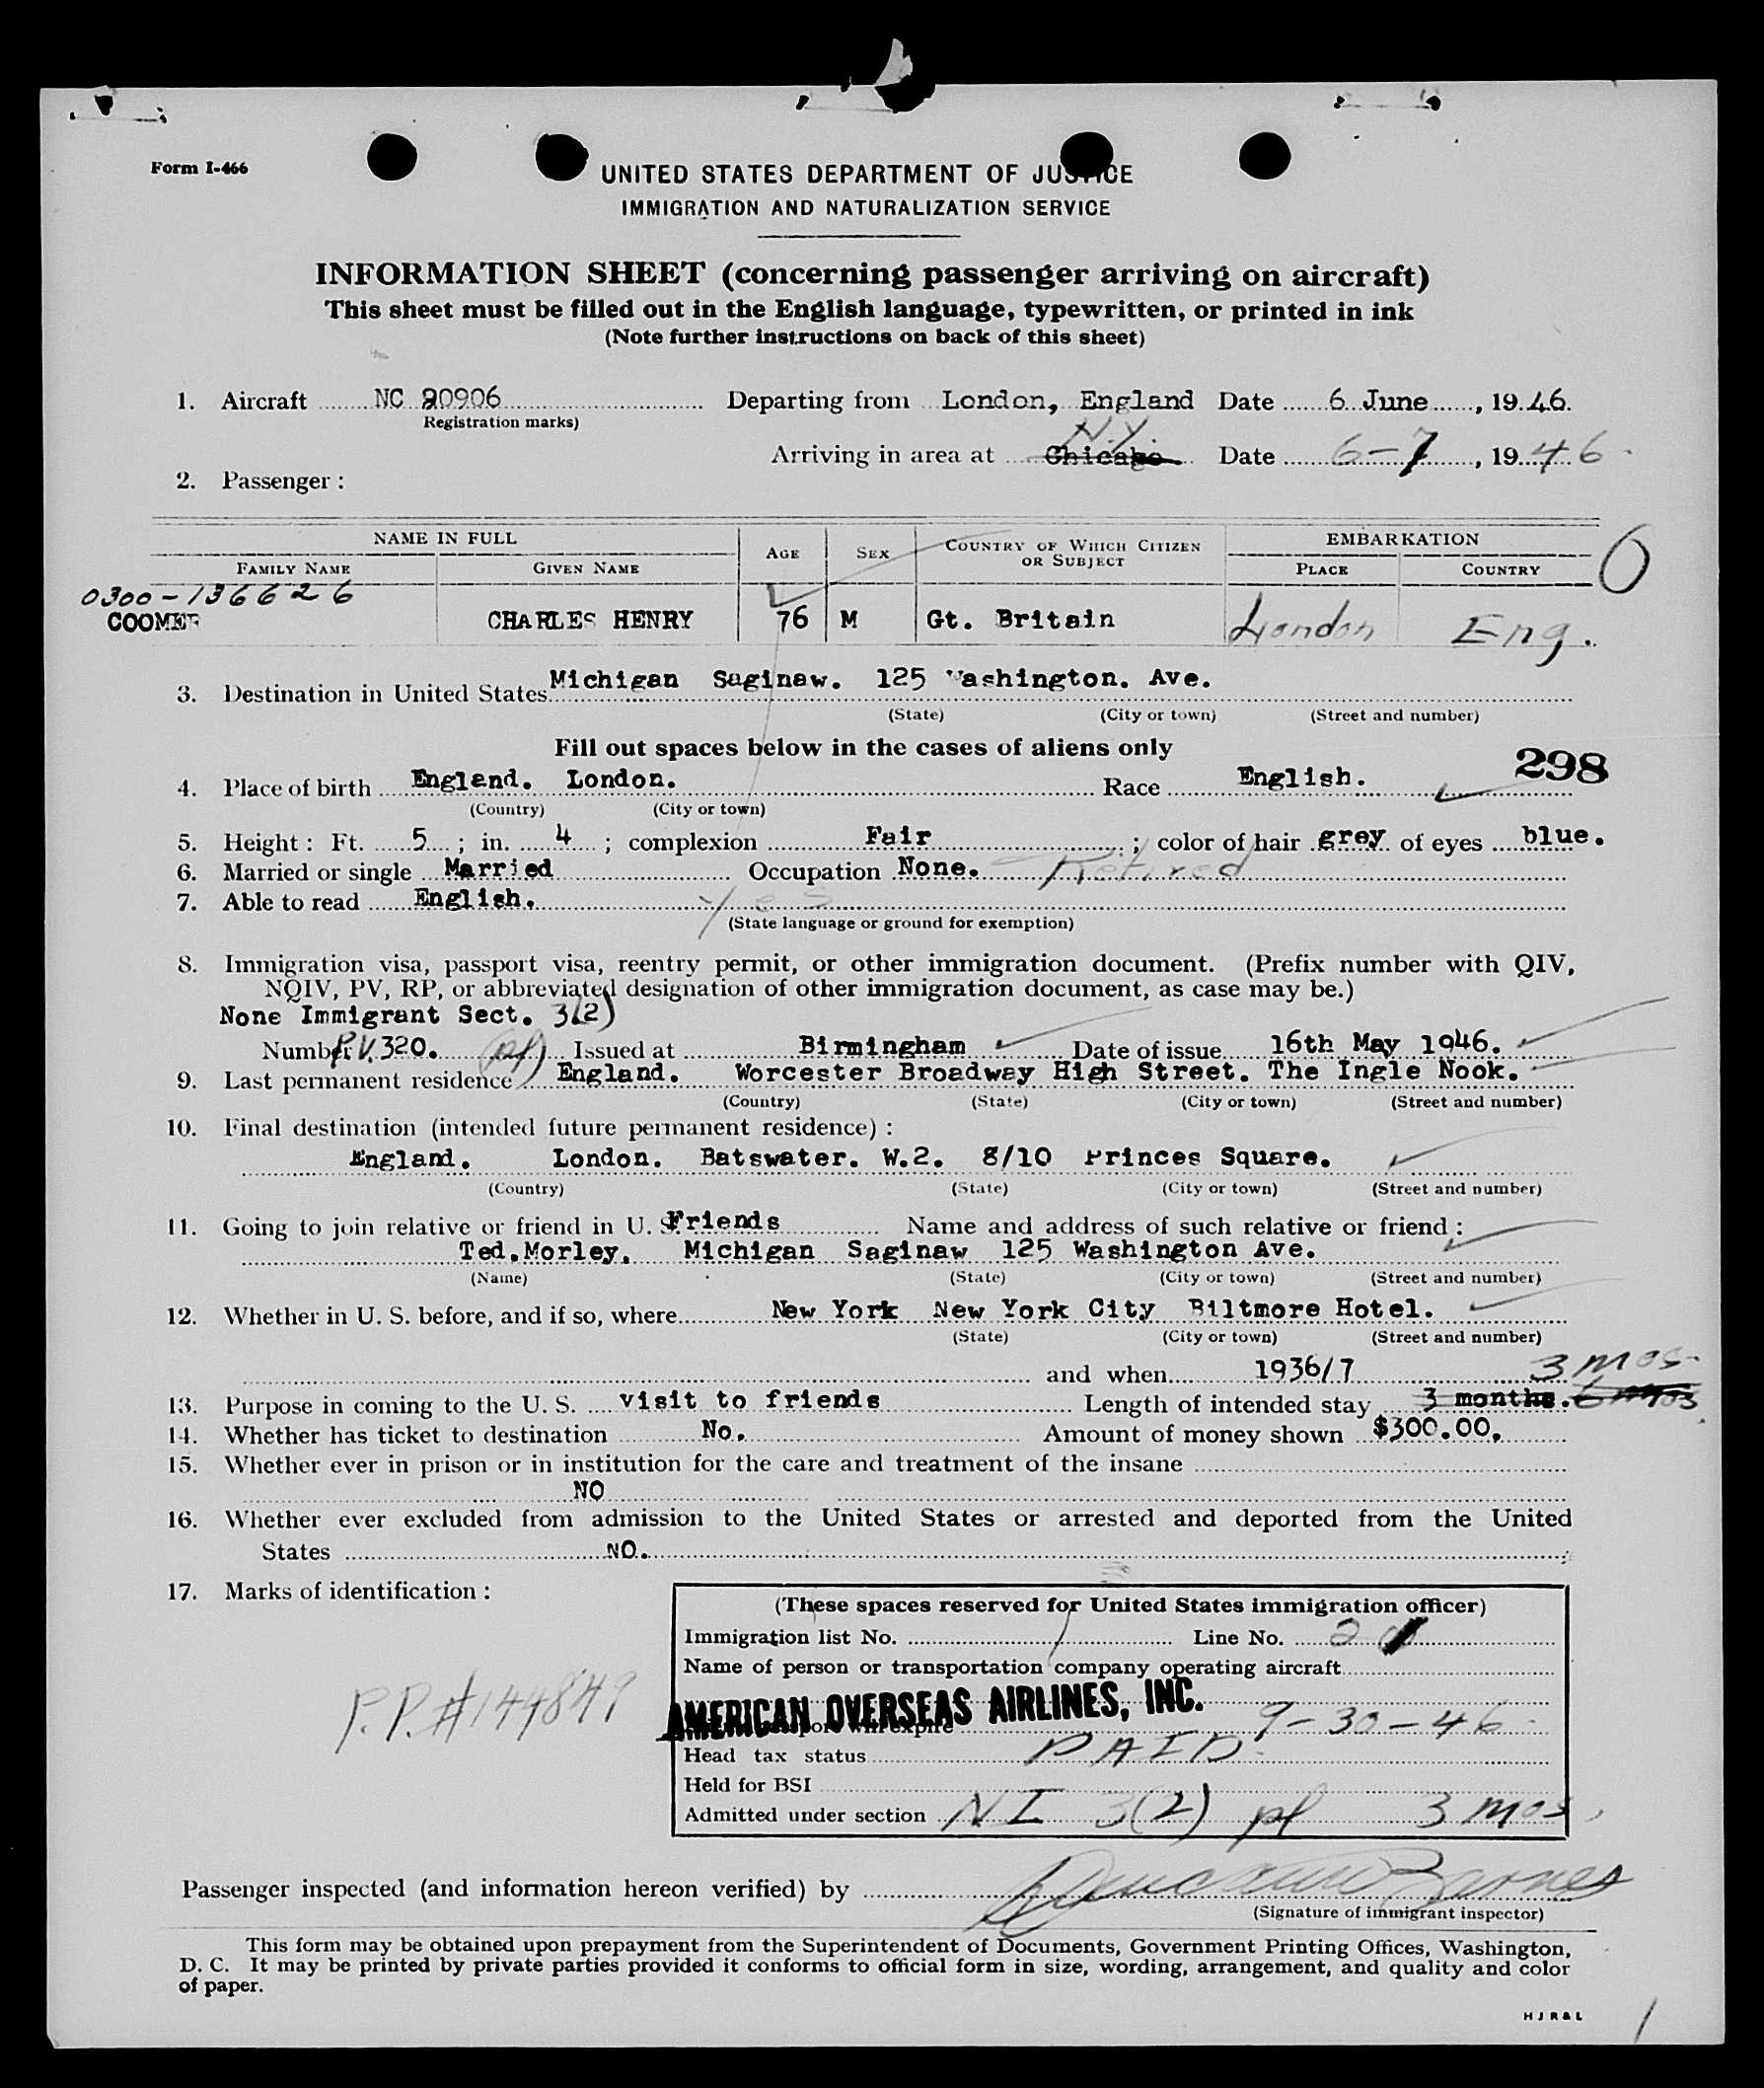 Form I-466
UNITED STATES DEPARTMENT OF JUSTICE
IMMIGRATION AND NATURALIZATION SERVICE
INFORMATION SHEET (concerning passenger arriving on aircraft)
This sheet must be filled out in the English language, typewritten, or printed in ink
(Note further instructions on back of this sheet)
1. Aircraft NC 90906 Departing from London, England Date 6 June, 1946.
(Registration marks)
N.Y.
Arriving in area at Chicago Date 6-7, 1946.
2. Passenger :
NAME IN FULL AGE SEX COUNTRY OF WHICH CITIZEN OR SUBJECT EMBARKATION
FAMILY NAME GIVEN NAME PLACE COUNTRY
0300-136626
COOMER CHARLES HENRY 76 M Gt. Britain London Eng.
3. Destination in United States Michigan Saginaw. 125 Washington. Ave.
(State) (City or town) (Street and number)
Fill out spaces below in the cases of aliens only
298
4. Place of birth England. London. Race English.
(Country) (City or town)
5. Height : Ft. 5 ; in. 4 ; complexion Fair ; color of hair grey of eyes blue.
6. Married or single Married Occupation None. Retired
7. Able to read English. Yes
(State language or ground for exemption)
8. Immigration visa, passport visa, reentry permit, or other immigration document. (Prefix number with QIV,
NQIV, PV, RP, or abbreviated designation of other immigration document, as case may be.)
None Immigrant Sect. 3(2)
Number P.V. 320. (pf) Issued at Birmingham Date of issue 16th May 1946.
9. Last permanent residence England. Worcester Broadway High Street. The Ingle Nook.
(Country) (State) (City or town) (Street and number)
10. Final destination (intended future permanent residence) :
England. London. Batswater. W.2. 8/10 Princes Square.
(Country) (State) (City or town) (Street and number)
11. Going to join relative or friend in U. S. Friends Name and address of such relative or friend :
Ted.Morley. Michigan Saginaw 125 Washington Ave.
(Name) (State) (City or town) (Street and number)
12. Whether in U. S. before, and if so, where New York New York City Biltmore Hotel.
(State) (City or town) (Street and number)
and when 1936/7 3 mos-
13. Purpose in coming to the U. S. visit to friends Length of intended stay 3 months. 6 mos
14. Whether has ticket to destination No. Amount of money shown $300.00.
15. Whether ever in prison or in institution for the care and treatment of the insane
NO
16. Whether ever excluded from admission to the United States or arrested and deported from the United
States NO.
17. Marks of identification :
P.P.#144849
(These spaces reserved for United States immigration officer)
Immigration list No. 1 Line No. 2
Name of person or transportation company operating aircraft
AMERICAN OVERSEAS AIRLINES, INC.
expire 9-30-46
Head tax status PAID
Held for BSI
Admitted under section NI 3(2) pf 3 mos,
Passenger inspected (and information hereon verified) by Barnes
(Signature of immigrant inspector)
This form may be obtained upon prepayment from the Superintendent of Documents, Government Printing Offices, Washington,
D. C. It may be printed by private parties provided it conforms to official form in size, wording, arrangement, and quality and color
of paper.
H J R & L
1